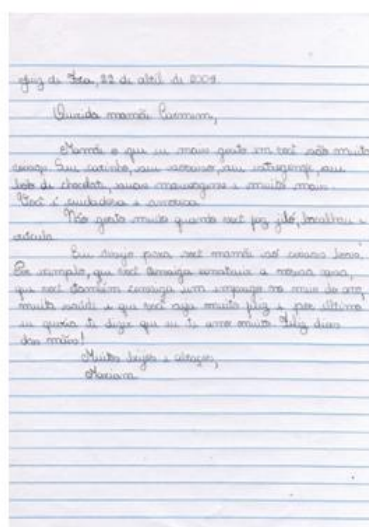 Juiz de Fora, 22 de abril de 2009.
Querida mamãe Carmem,
Mamãe o que eu mais gosto em você são muitas
coisas: Seu carinho, seu sorriso, seu estrogonofe, seu
bolo de chocolate, e muito mais.
Você é cuidadosa e amorosa.
Não gosto muito quando você faz jiló, e
Eu desejo para você mamãe só coisas boas.
Por exemplo, que você consiga construir a nossa casa,
que você também consiga um emprego no meio do ano,
muita saúde e que você seja muito feliz e por último
eu queria te dizer que eu te amo muito. Feliz dia
das mães!
Muitos beijos e abraços,
Mariana